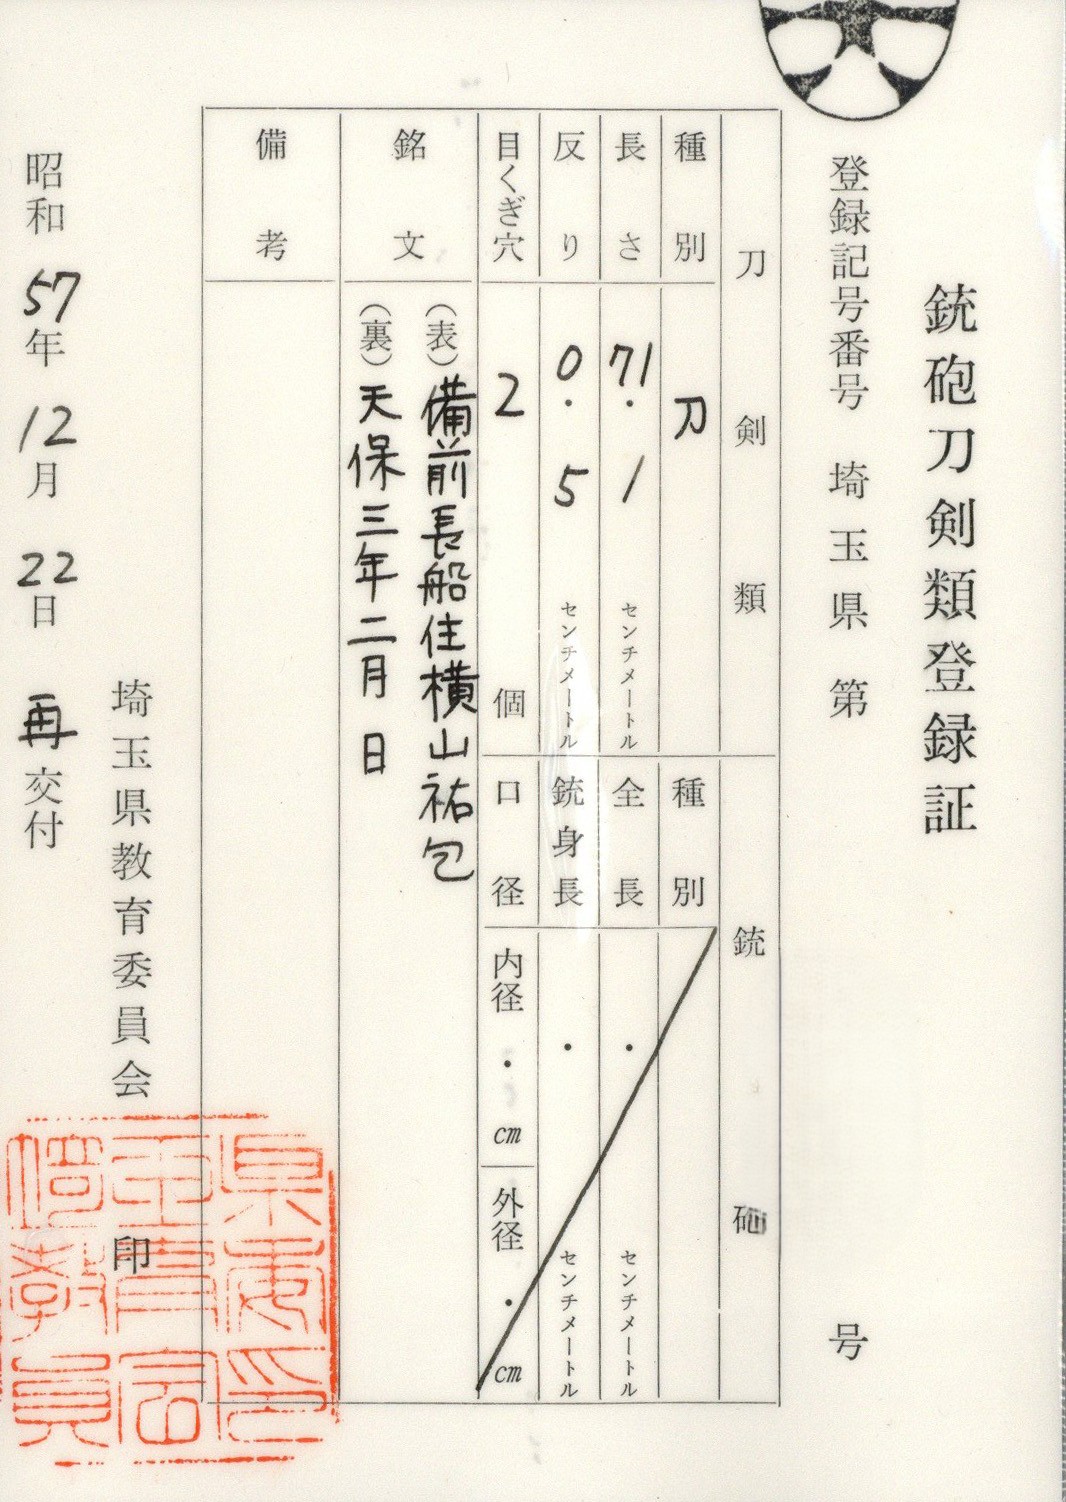 銃砲刀剣類登録証
登録記号番号 埼玉県 第 号
刀剣類
種別 刀
長さ 71.1 センチメートル
反り 0.5 センチメートル
目くぎ穴 2 個
銃砲
種別
全長 ・ センチメートル
銃身長 ・ センチメートル
口径 内径 ・ cm 外径 ・ cm
銘文
(表)備前長船住横山祐包
(裏)天保三年二月日
備考
埼玉県教育委員会 印
昭和57年12月22日 再交付
県委印
玉育会
埼教員